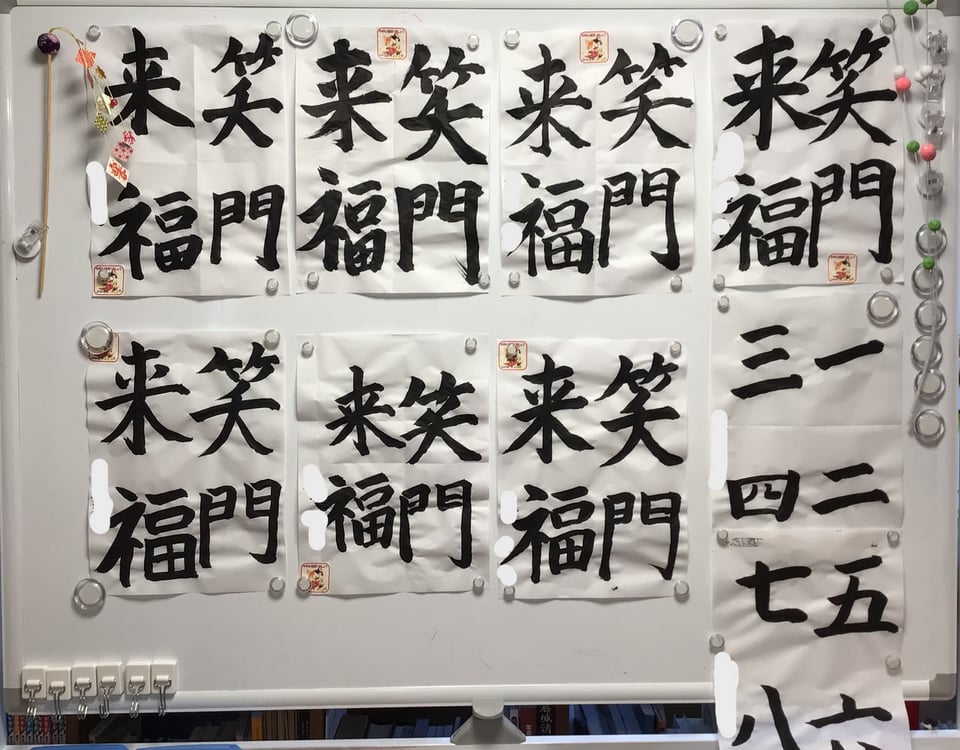 笑門
来福
笑門
来福
笑門
来福
笑門
来福
笑門
来福
笑門
来福
笑門
来福
一二
三四
五六
七八